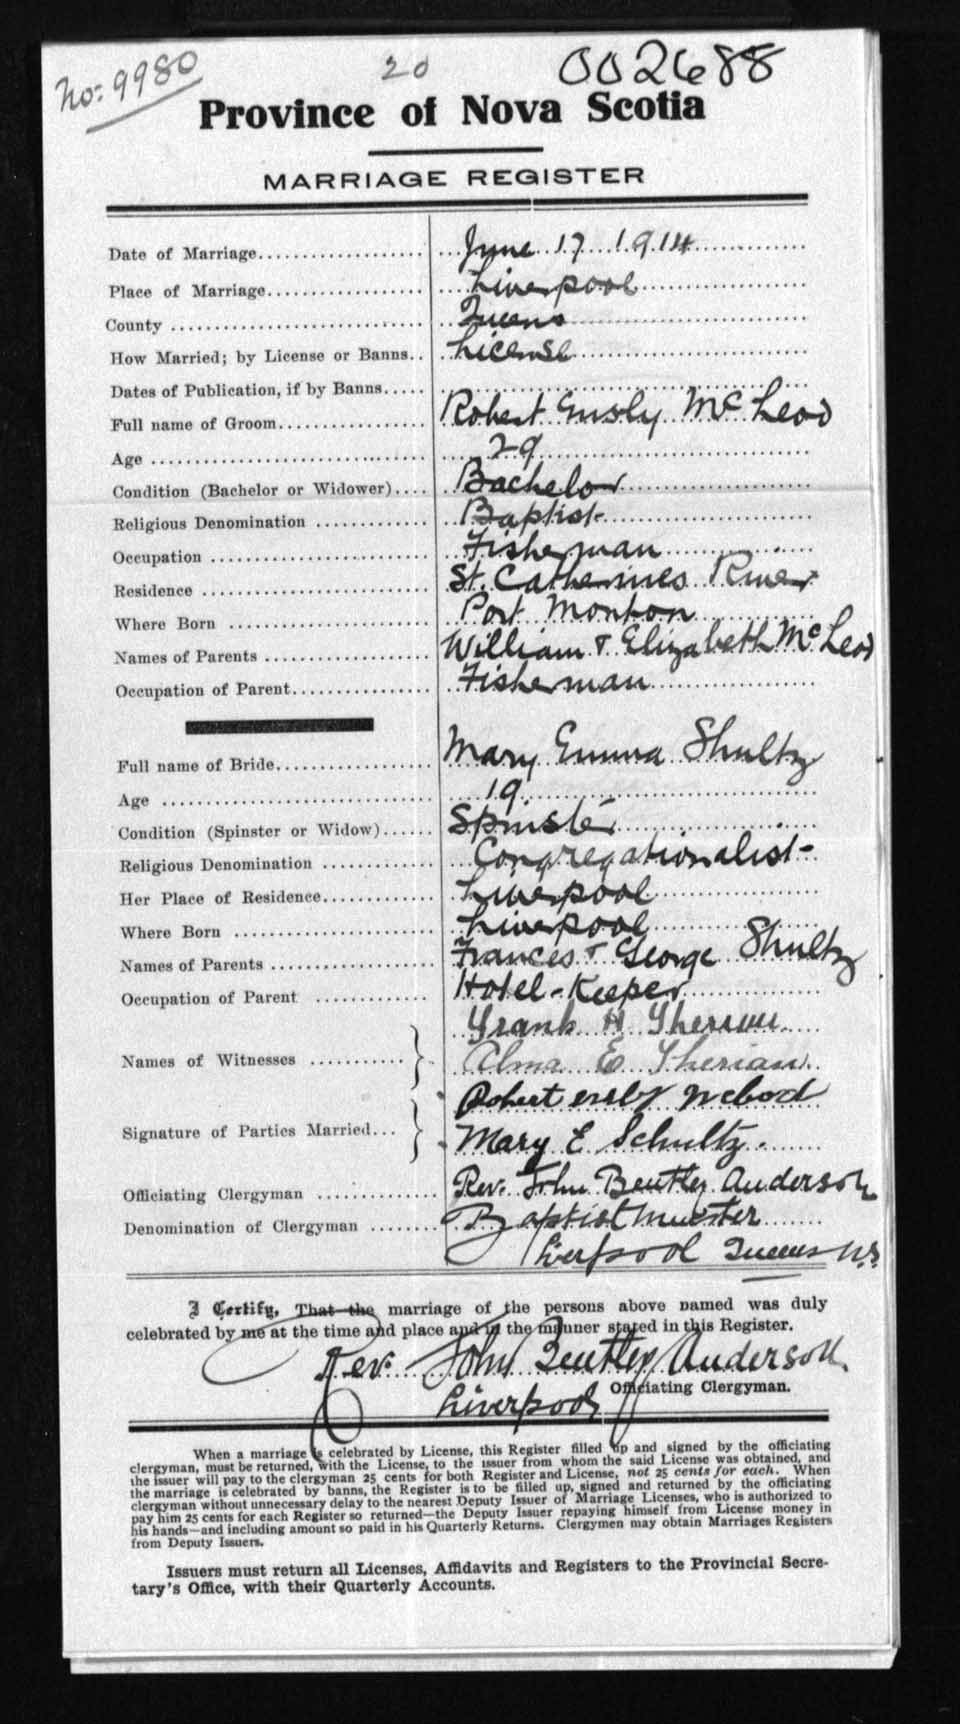 No: 9980
20
002688
Province of Nova Scotia
MARRIAGE REGISTER
Date of Marriage June 17 1914
Place of Marriage Liverpool
County Queens
How Married; by License or Banns License
Dates of Publication, if by Banns
Full name of Groom Robert McLeod
Age 29
Condition (Bachelor or Widower) Bachelor
Religious Denomination Baptist
Occupation Fisherman
Residence St. Catherines River
Where Born Port Monton
Names of Parents William & Elizabeth McLeod
Occupation of Parent Fisherman
Full name of Bride Mary Emma Shultz
Age 19
Condition (Spinster or Widow) Spinster
Religious Denomination Congregationalist
Her Place of Residence Liverpool
Where Born Liverpool
Names of Parents Frances & George Shultz
Occupation of Parent Hotel-Keeper
Frank H
Names of Witnesses
Alma E
Robert
Signature of Parties Married
Mary E Schultz.
Officiating Clergyman Rev. John Bentley Anderson
Denomination of Clergyman Baptist Minister
Liverpool Queens N.S.
I Certify, That the marriage of the persons above named was duly
celebrated by me at the time and place and in the manner stated in this Register.
Rev. John Bentley Anderson
Officiating Clergyman.
Liverpool
When a marriage is celebrated by License, this Register filled up and signed by the officiating
clergyman, must be returned, with the License, to the issuer from whom the said License was obtained, and
the issuer will pay to the clergyman 25 cents for both Register and License, not 25 cents for each. When
the marriage is celebrated by banns, the Register is to be filled up, signed and returned by the officiating
clergyman without unnecessary delay to the nearest Deputy Issuer of Marriage Licenses, who is authorized to
pay him 25 cents for each Register so returned—the Deputy Issuer repaying himself from License money in
his hands—and including amount so paid in his Quarterly Returns. Clergymen may obtain Marriages Registers
from Deputy Issuers.
Issuers must return all Licenses, Affidavits and Registers to the Provincial Secre-
tary's Office, with their Quarterly Accounts.